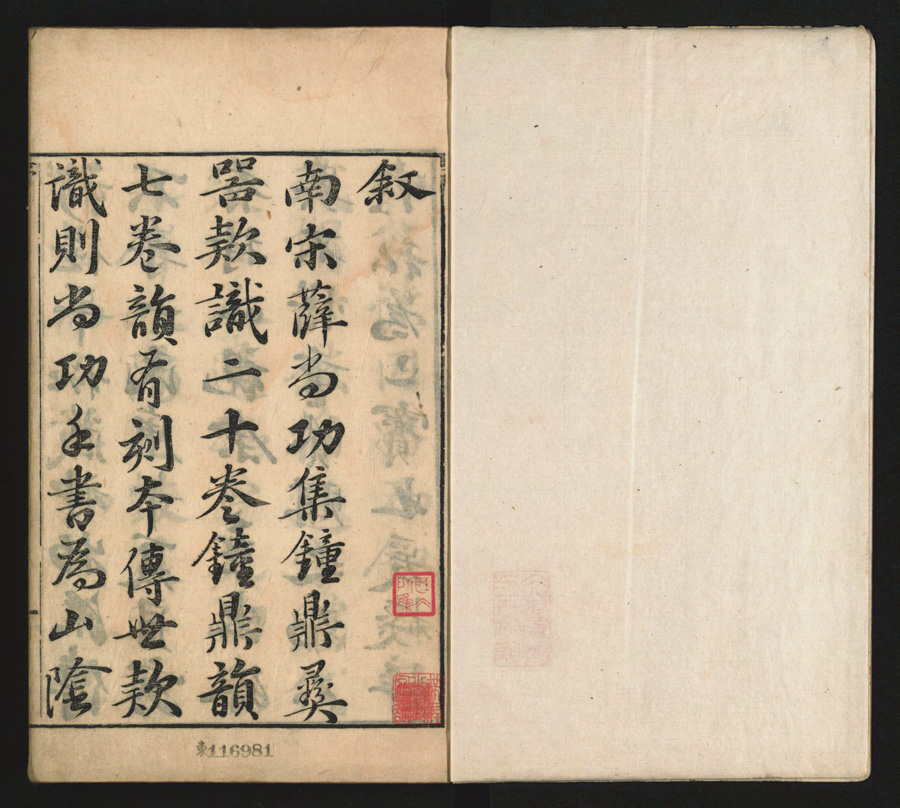 叙
南宋薛尚功集鐘鼎彝
器款識二十卷鐘鼎韻
七卷韻有刻本傳世款
識則尚功手書為山陰
東116981